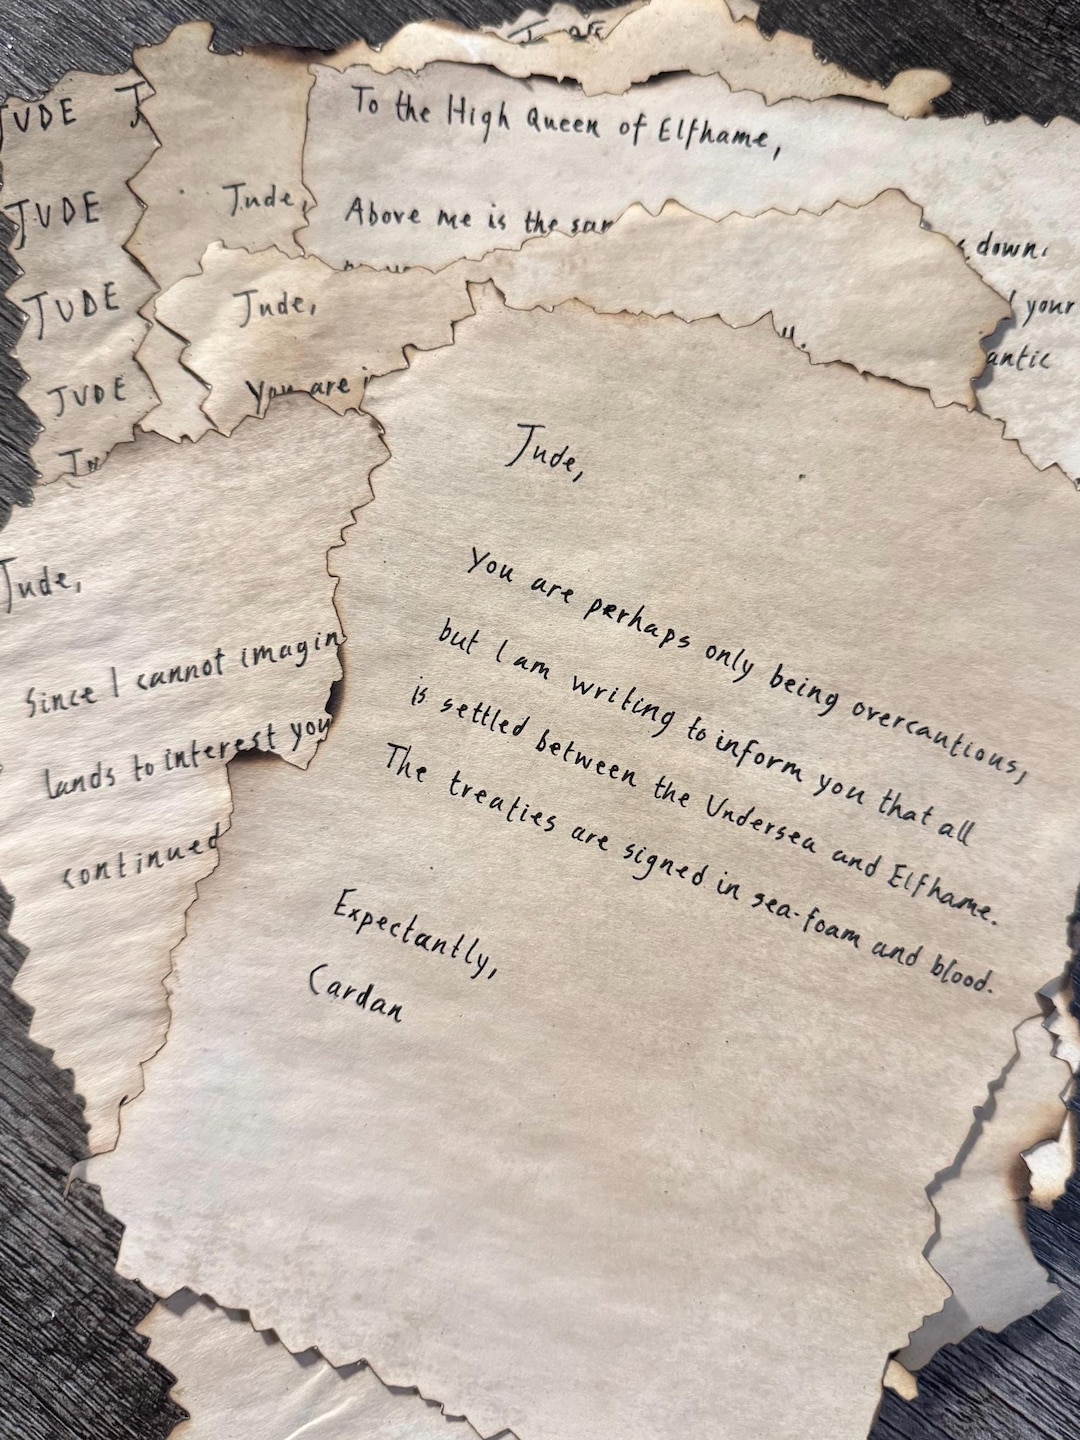 JUDE
JUDE
JUDE
JUDE
Jude,
To the High Queen of Elfhame,
Above me is the
down.
your
Jude,
You are
Jude,
Since I cannot
lands to interest you
continued
Jude,
You are perhaps only being overcautious,
but I am writing to inform you that all
is settled between the Undersea and Elfhame.
The treaties are signed in sea-foam and blood.
Expectantly,
Cardan